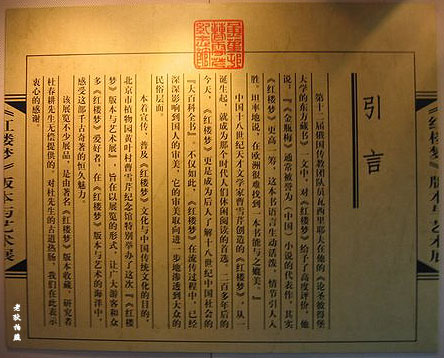 《红楼梦》版本与艺术展
引言
第十一届俄国传教团队员瓦西里耶夫在他的《论圣彼得堡
大学的东方藏书》文中，对《红楼梦》给予了高度评价，他
说：『《金瓶梅》通常被誉为（中国）小说的代表作，其实
《红楼梦》更高一筹，这本书语言生动活泼，情节引人入
胜。坦率地说，在欧洲很难找到一本书能与之媲美。』
中国十八世纪天才文学家曹雪芹创造的《红楼梦》，从一
诞生起，就成为那个时代人们休闲阅读的首选。二百多年后的
今天，《红楼梦》更是成为后人了解十八世纪中国社会的
『大百科全书』。不仅如此，《红楼梦》在流传过程中，已经
深深影响到国人的审美，它的审美取向进一步地渗透到大众的
民俗层面
本着宣传、普及《红楼梦》文化与中国传统文化的目的，
北京市植物园黄叶村曹雪芹纪念馆特别举办了这次『《红楼
梦》版本与艺术展』，旨在以展览的形式，让广大游客和众
多《红楼梦》爱好者，在《红楼梦》版本与艺术的海洋中，
感受这部千古奇著的恒久魅力。
该展览不少展品，是由著名《红楼梦》版本收藏、研究者
杜春耕先生无偿提供的，对杜先生的古道热肠，我们在此表示
衷心的感谢。
《红楼梦》版本与艺术展
老狄拍摄